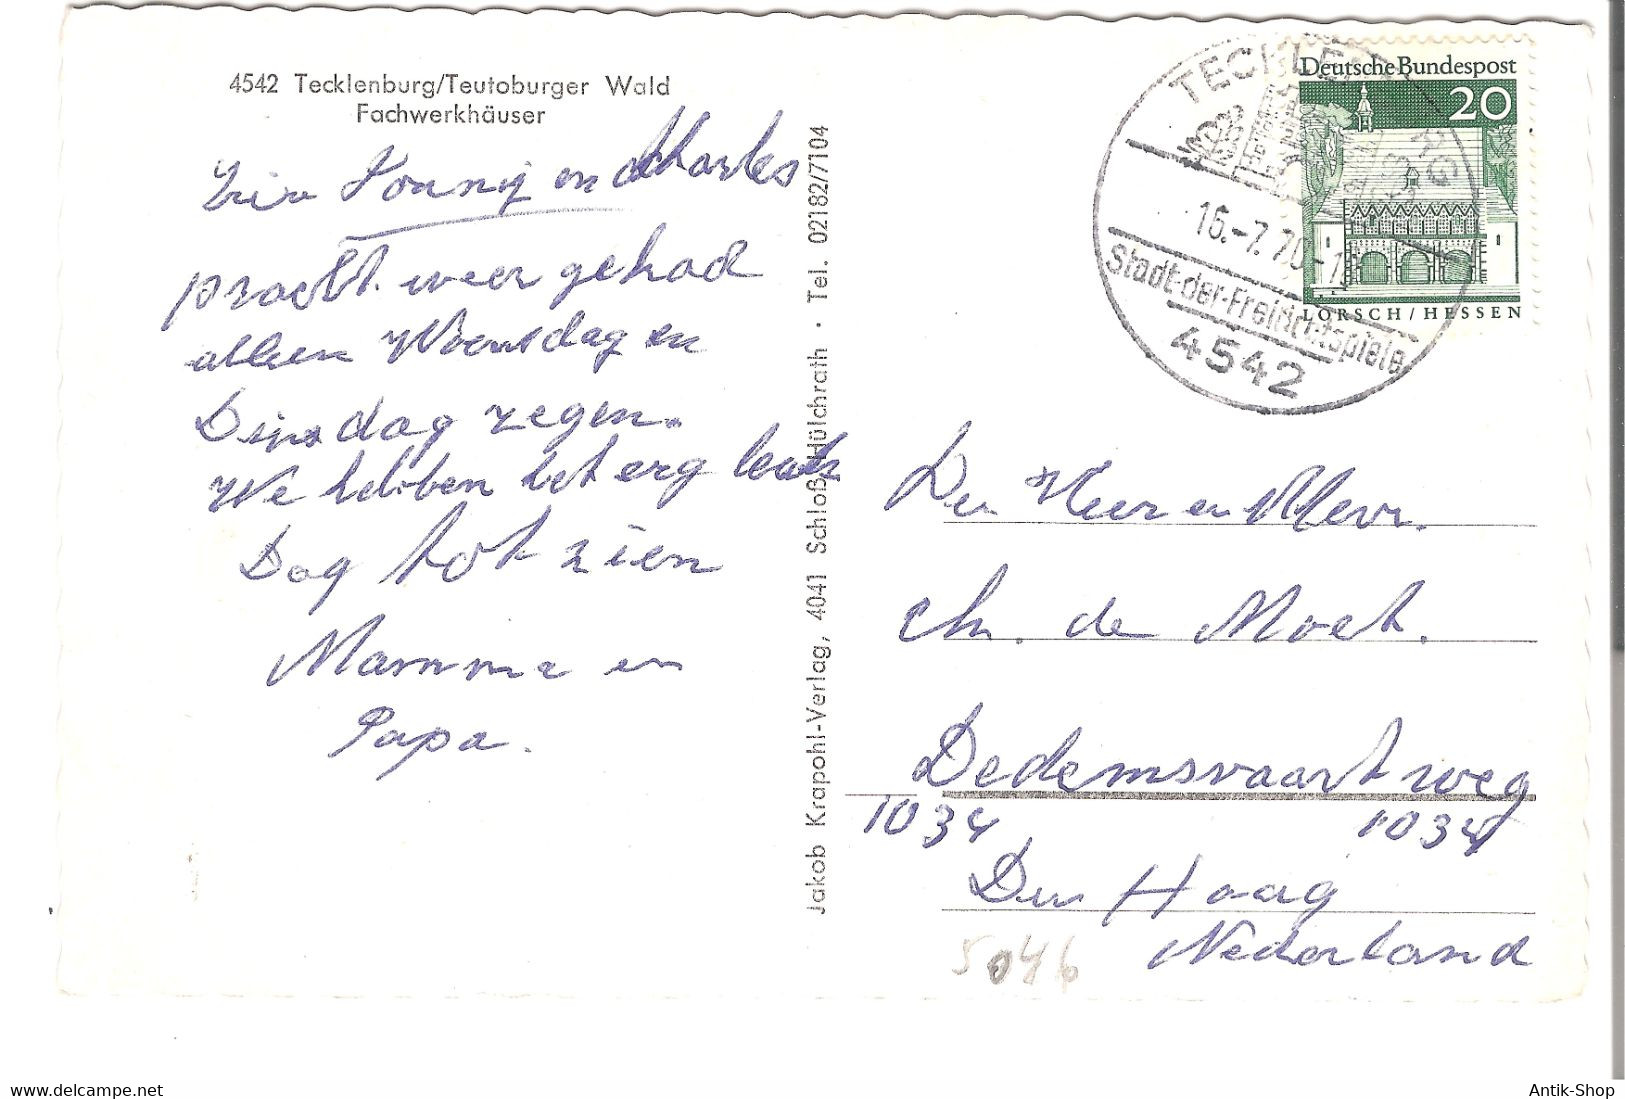 4542 Tecklenburg/Teutoburger Wald
Fachwerkhäuser
en Charles
pracht weer gehad
alleen Woensdag en
Dinsdag regen.
We hebben het erg leuk
Dag tot zien
Mamma en
Papa.
Jakob Krapohl-Verlag, 4041 Schloß Hülchrath · Tel. 02182/7104
TECKLENBURG
16.-7.70-1
Stadt-der-Freilichtspiele
4542
Deutsche Bundespost
20
LORSCH/HESSEN
Den Heer en Mevr.
Ch. de Moet.
Dedemsvaartweg
1034 1034
Den Haag
Nederland
5046
delcampe.net
Antik-Shop